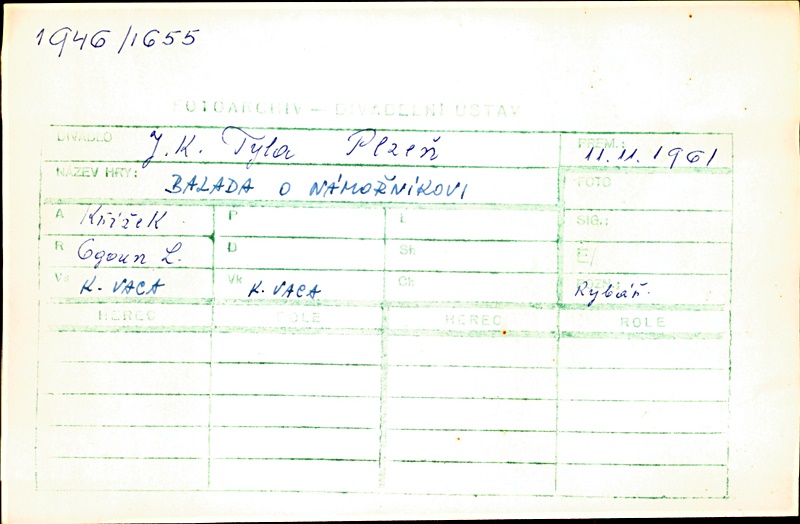 1946/1655
FOTOARCHIV — DIVADELNÍ ÚSTAV
DIVADLO J.K. Tyla Plzeň PREM.: 11.11.1961
NÁZEV HRY: BALADA O NÁMOŘNÍKOVI FOTO
A Křížek P L SIG.:
R Ogoun L. D Sh
K. VACA Vk K. VACA Ch Rybář.
HEREC ROLE HEREC ROLE